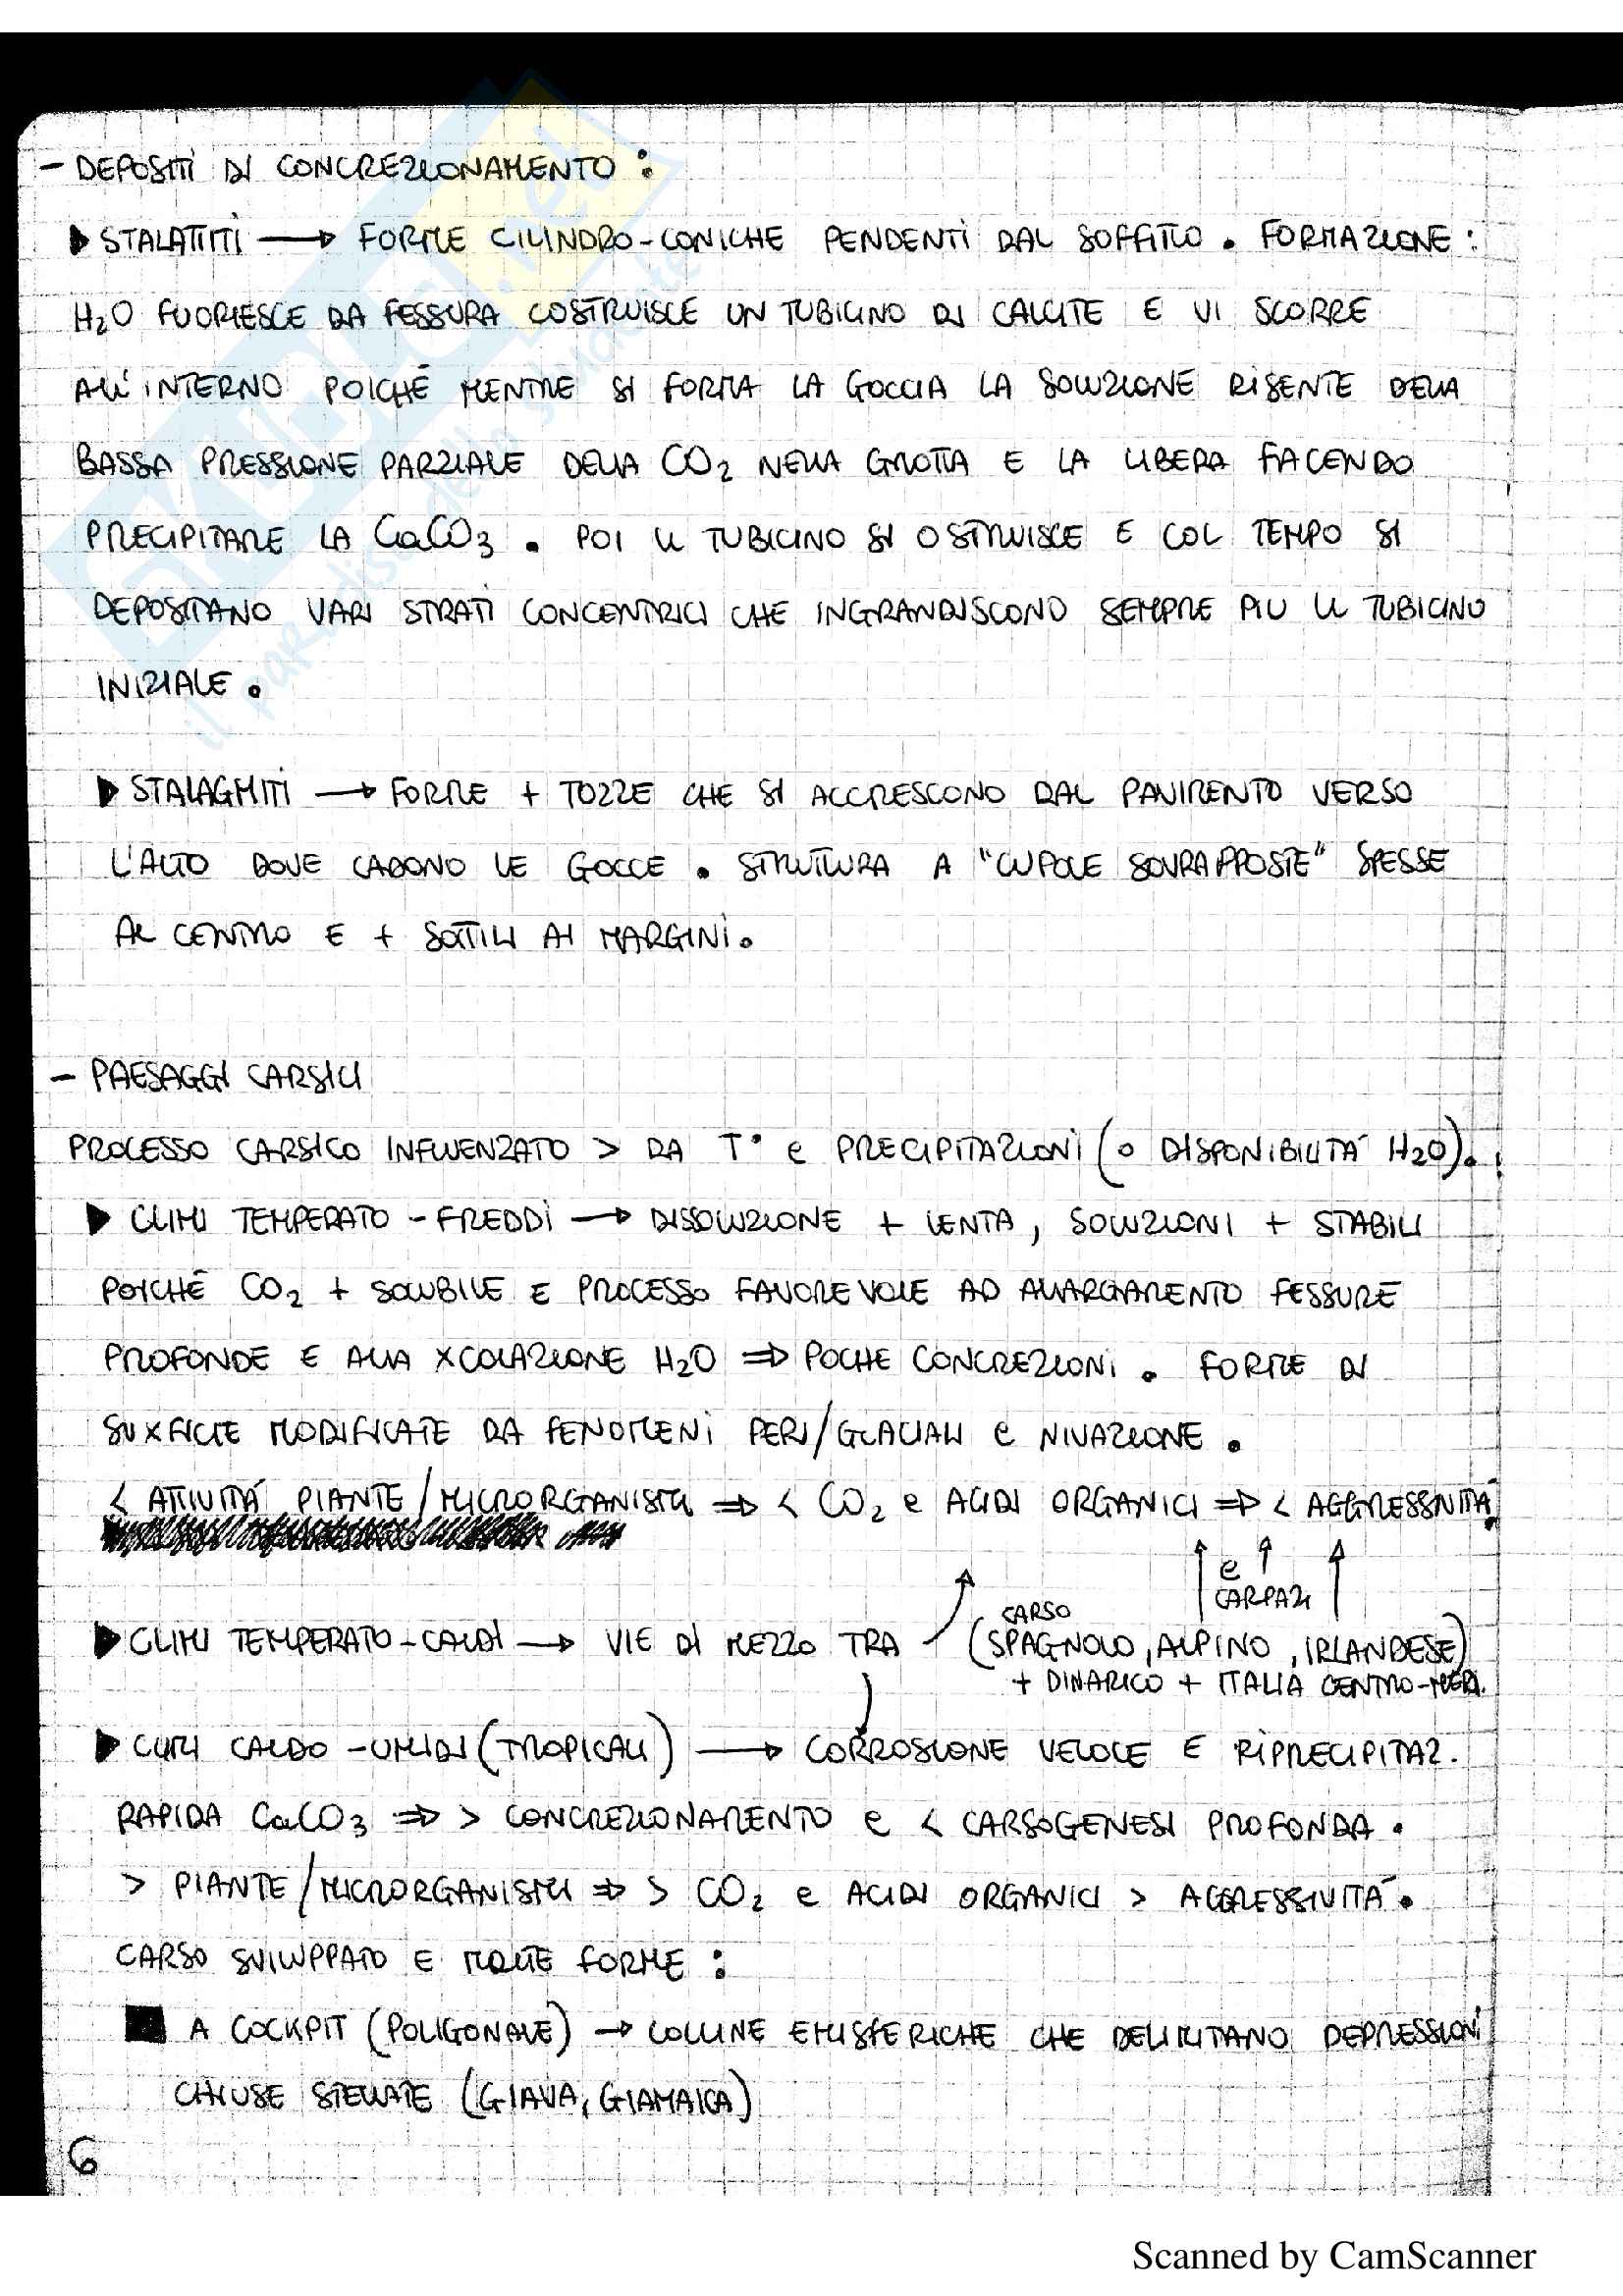 - DEPOSITI DI CONCREZIONAMENTO :
▶ STALATTITI → FORME CILINDRO-CONICHE PENDENTI DAL SOFFITTO. FORMAZIONE :
H₂O FUORIESCE DA FESSURA COSTRUISCE UN TUBICINO DI CALCITE E VI SCORRE
ALL'INTERNO POICHÉ MENTRE SI FORMA LA GOCCIA LA SOLUZIONE RISENTE DELLA
BASSA PRESSIONE PARZIALE DELLA CO₂ NELLA GROTTA E LA LIBERA FACENDO
PRECIPITARE LA CaCO₃. POI IL TUBICINO SI OSTRUISCE E COL TEMPO SI
DEPOSITANO VARI STRATI CONCENTRICI CHE INGRANDISCONO SEMPRE PIU IL TUBICINO
INIZIALE.
▶ STALAGMITI → FORME + TOZZE CHE SI ACCRESCONO DAL PAVIMENTO VERSO
L'ALTO DOVE CADONO LE GOCCE. STRUTTURA A "CUPOLE SOVRAPPOSTE" SPESSE
AL CENTRO E + SOTTILI AI MARGINI.
- PAESAGGI CARSICI
PROCESSO CARSICO INFLUENZATO > DA T° e PRECIPITAZIONI (o DISPONIBILITÀ H₂O).
▶ CLIMI TEMPERATO-FREDDI → DISSOLUZIONE + LENTA, SOLUZIONI + STABILI
POICHÉ CO₂ + SOLUBILE E PROCESSO FAVOREVOLE AD ALLARGAMENTO FESSURE
PROFONDE E ALLA XCOLAZIONE H₂O ⇒ POCHE CONCREZIONI. FORME DI
SUXFICIE MODIFICATE DA FENOMENI PERI/GLACIALI e NIVAZIONE.
< ATTIVITÀ PIANTE/MICRORGANISMI ⇒ < CO₂ e ACIDI ORGANICI ⇒ < AGGRESSIVITÀ.
e
CARPAZI
CARSO
▶ CLIMI TEMPERATO-CALDI → VIE DI MEZZO TRA (SPAGNOLO, ALPINO, IRLANDESE)
+ DINARICO + ITALIA CENTRO-MERID.
▶ CLIMI CALDO-UMIDI (TROPICALI) → CORROSIONE VELOCE E RIPRECIPITAZ.
RAPIDA CaCO₃ ⇒ > CONCREZIONAMENTO e < CARSOGENESI PROFONDA.
> PIANTE/MICRORGANISMI ⇒ > CO₂ e ACIDI ORGANICI > AGGRESSIVITÀ.
CARSO SVILUPPATO E MOLTE FORME :
■ A COCKPIT (POLIGONALE) → COLLINE EMISFERICHE CHE DELIMITANO DEPRESSIONI
CHIUSE STELLATE (GIAVA, GIAMAICA)
6
Scanned by CamScanner